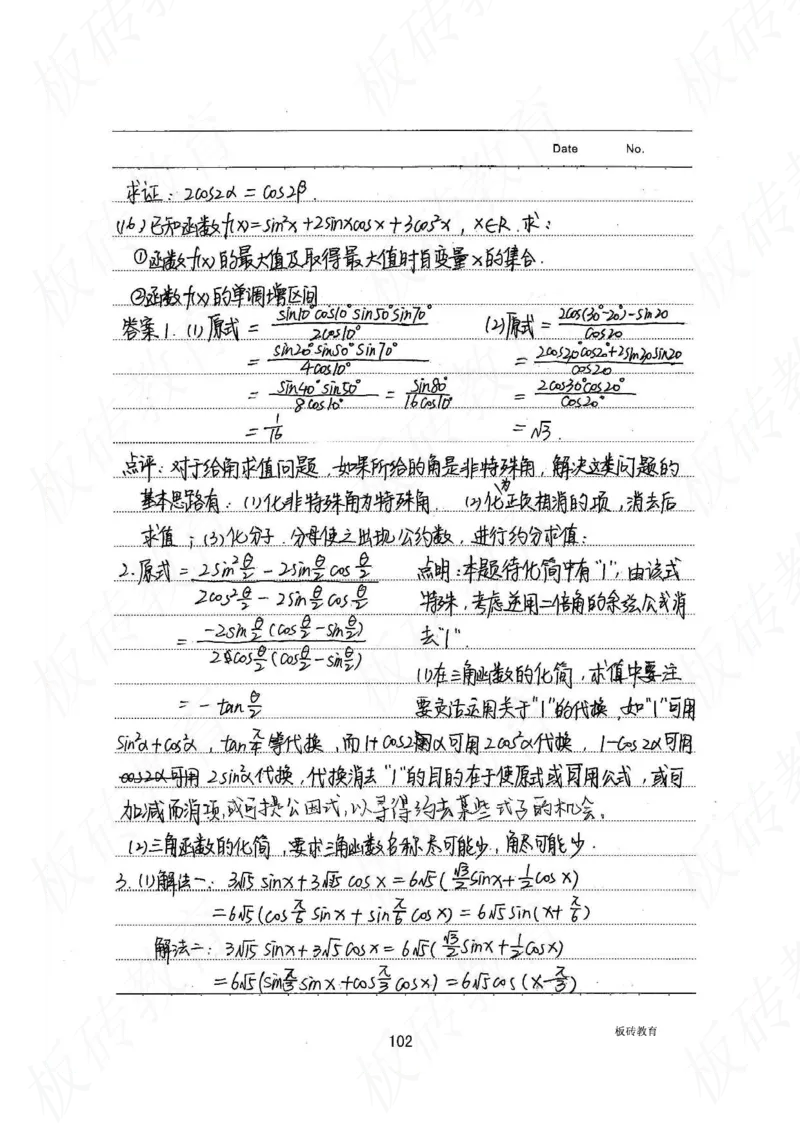 Date No.
求证：2cos2α = cos2β.
(16) 已知函数f(x)=sin²x+2sinxcosx+3cos²x，x∈R. 求：
①函数f(x)的最大值及取得最大值时自变量x的集合.
②函数f(x)的单调增区间
答案1. (1)原式 = sin10°cos10°sin50°sin70° / 2cos10° (2)原式 = 2cos(30°-20°)-sin20 / cos20
= sin20°sin50°sin70° / 4cos10° = 2cos30°cos20°+2sin30sin20 / cos20
= sin40°sin50° / 8cos10° = sin80° / 16cos10° = 2cos30°cos20° / cos20°
= 1/16 = √3.
点评：对于给角求值问题，如果所给的角是非特殊角，解决这类问题的
基本思路有：(1)化非特殊角为特殊角. (2)化为正负相消的项，消去后
求值；(3)化分子.分母使之出现公约数，进行约分求值：
2.原式 = 2sin²θ/2 - 2sinθ/2 cosθ/2 / 2cos²θ/2 - 2sinθ/2 cosθ/2 点明：本题待化简中有"1"，由该式
特殊，考虑逆用二倍角的余弦公式消
= -2sinθ/2 (cosθ/2 - sinθ/2) / 2cosθ/2 (cosθ/2 - sinθ/2) 去"1".
(1)在三角函数的化简，求值中要注
= -tan θ/2 要灵活运用关于"1"的代换，如"1"可用
sin²α+cos²α，tanπ/4等代换，而1+cos2α可用2cos²α代换，1-cos2α可用
cos2α可用2sin²α代换，代换消去"1"的目的在于使原式或可用公式，或可
加减而消项，或可提公因式，以寻得约去某些式子的机会。
(2)三角函数的化简，要求三角函数名称尽可能少，角尽可能少.
3. (1)解法一：3√15 sinx+3√5 cosx = 6√5(√3/2 sinx+1/2 cosx)
=6√5(cosπ/6 sinx + sinπ/6 cosx) = 6√5 sin(x+π/6)
解法二：3√15 sinx+3√5 cosx = 6√5(√3/2 sinx+1/2 cosx)
=6√5(sinπ/3 sinx+cosπ/3 cosx) = 6√5 cos(x-π/3)
板砖教育
102